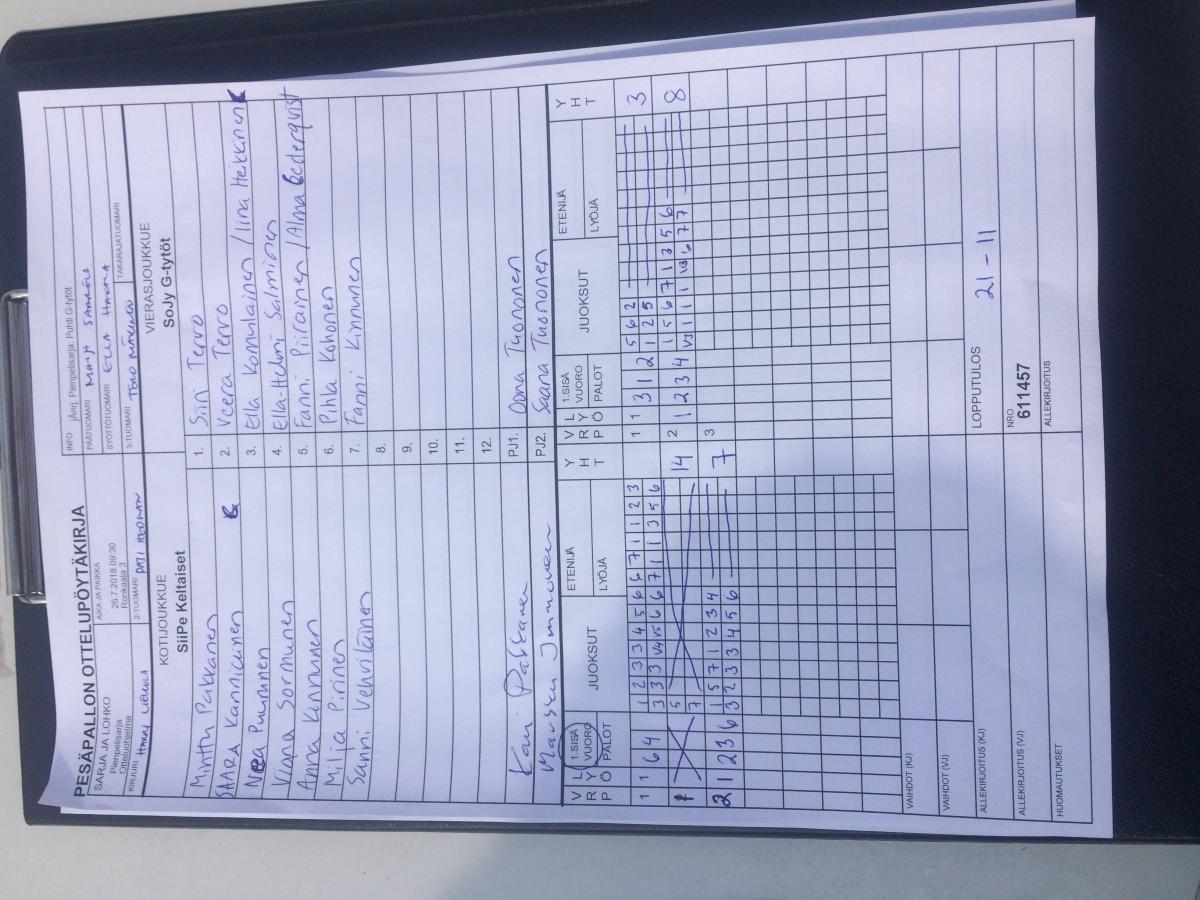 PESÄPALLON OTTELUPÖYTÄKIRJA
SARJA JA LOHKO
Pienpelisarja
Otteluohjelma
AIKA JA PAIKKA
26.7.2018 09:30
Ronkaala 3
INFO jÄmj. Pienpelisarja: Puhti G-tytöt
PÄÄTUOMARI
SYÖTTÖTUOMARI ELLA
KIRJURI
2-TUOMARI
3-TUOMARI
TAKARAJATUOMARI
KOTIJOUKKUE
SiiPe Keltaiset
VIERASJOUKKUE
SoJy G-tytöt
Minttu Pakkanen 1. Siiri Tervo
SAARA Kanniainen 2. Veera Tervo
Neea Purmonen 3. Ella Komulainen / Iina Heikkinen
Viena Sormunen 4. Ella-Helmi Salminen
Anna Kinnunen 5. Fanni Piirainen / Alma Cederqvist
Milja Pirinen 6. Pihla Kohonen
Sanni Vehviläinen 7. Fanni Kinnunen
8.
9.
10.
11.
12.
Kari Pakkanen PJ1. Oona Tuononen
Immonen PJ2. Saana Tuononen
V R P L Y Ö 1.SISÄ VUORO PALOT JUOKSUT ETENIJÄ LYÖJÄ Y H T V R P L Y Ö 1.SISÄ VUORO PALOT JUOKSUT ETENIJÄ LYÖJÄ Y H T
1 1 6 4 1 2 3 3 4 5 6 6 7 1 1 2 3 1 1 3 1 2 5 6 2 3
3 3 3 V4 V5 6 6 7 1 1 3 5 6 1 2 5
5 14 2 1 2 3 4 1 5 6 7 1 3 5 6 8
7 V3 1 1 1 V3 6 7 7
2 1 2 3 6 1 5 7 1 2 3 4 7 3
3 2 3 3 4 5 6
VAIHDOT (KJ)
VAIHDOT (VJ)
ALLEKIRJOITUS (KJ) LOPPUTULOS 21 - 11
ALLEKIRJOITUS (VJ) NRO 611457
HUOMAUTUKSET ALLEKIRJOITUS